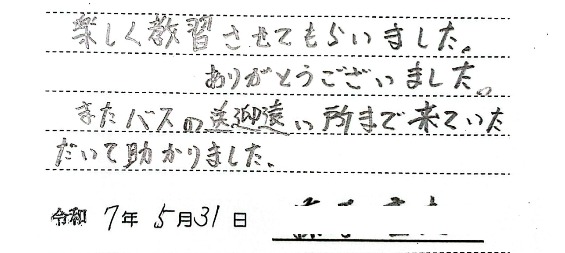 楽しく教習させてもらいました。
ありがとうございました。
またバスの送迎遠い所まで来ていた
だいて助かりました。
令和 7年 5月31日